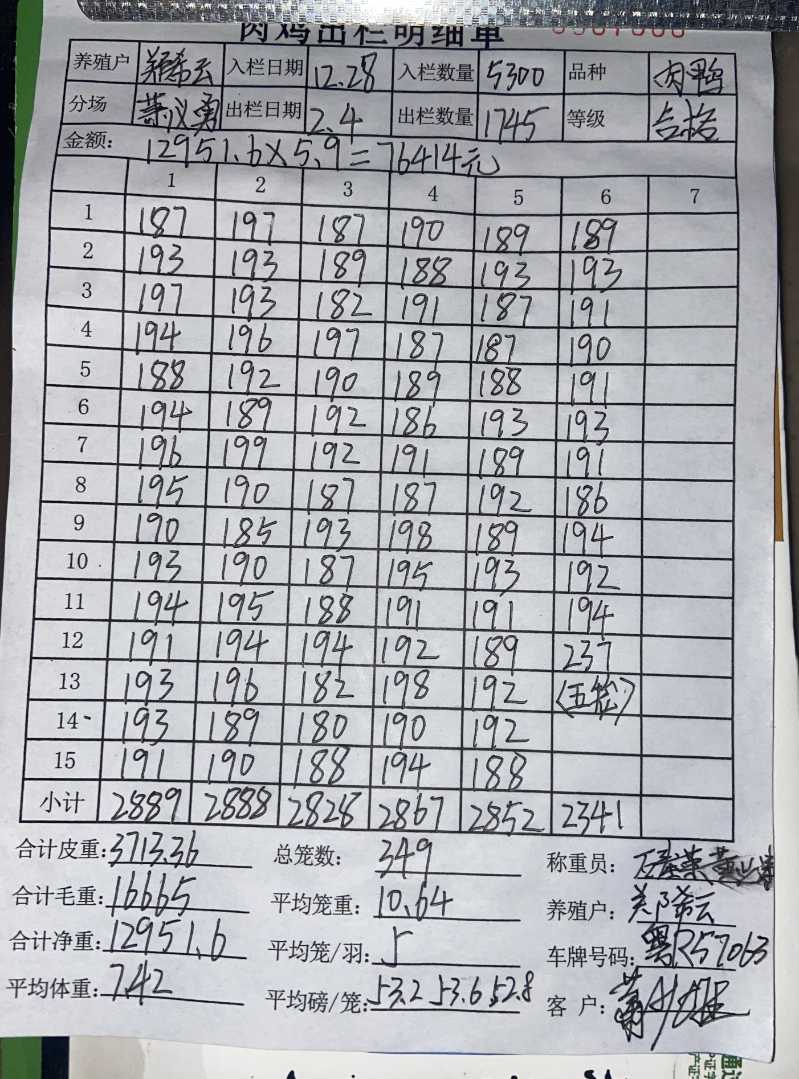 肉鸡出栏明细单
养殖户 郑希云 入栏日期 12.28 入栏数量 5300 品种 肉鸭
分场 萧义勇 出栏日期 2.4 出栏数量 1745 等级 合格
金额: 12951.6×5.9=76414元
1 2 3 4 5 6 7
1 187 197 187 190 189 189
2 193 193 189 188 193 193
3 197 193 182 191 187 191
4 194 196 197 187 187 190
5 188 192 190 189 188 191
6 194 189 192 186 193 193
7 196 199 192 191 189 191
8 195 190 187 187 192 186
9 190 185 193 198 189 194
10 193 190 187 195 193 192
11 194 195 188 191 191 194
12 191 194 194 192 189 237
13 193 196 182 198 192 (五笼)
14 193 189 180 190 192
15 191 190 188 194 188
小计 2889 2888 2828 2867 2852 2341
合计皮重: 3713.36 总笼数: 349 称重员:
合计毛重: 16665 平均笼重: 10.64 养殖户: 郑希云
合计净重: 12951.6 平均笼/羽: 5 车牌号码: 粤R57063
平均体重: 7.42 平均磅/笼: 53.2 53.6 52.8 客 户: